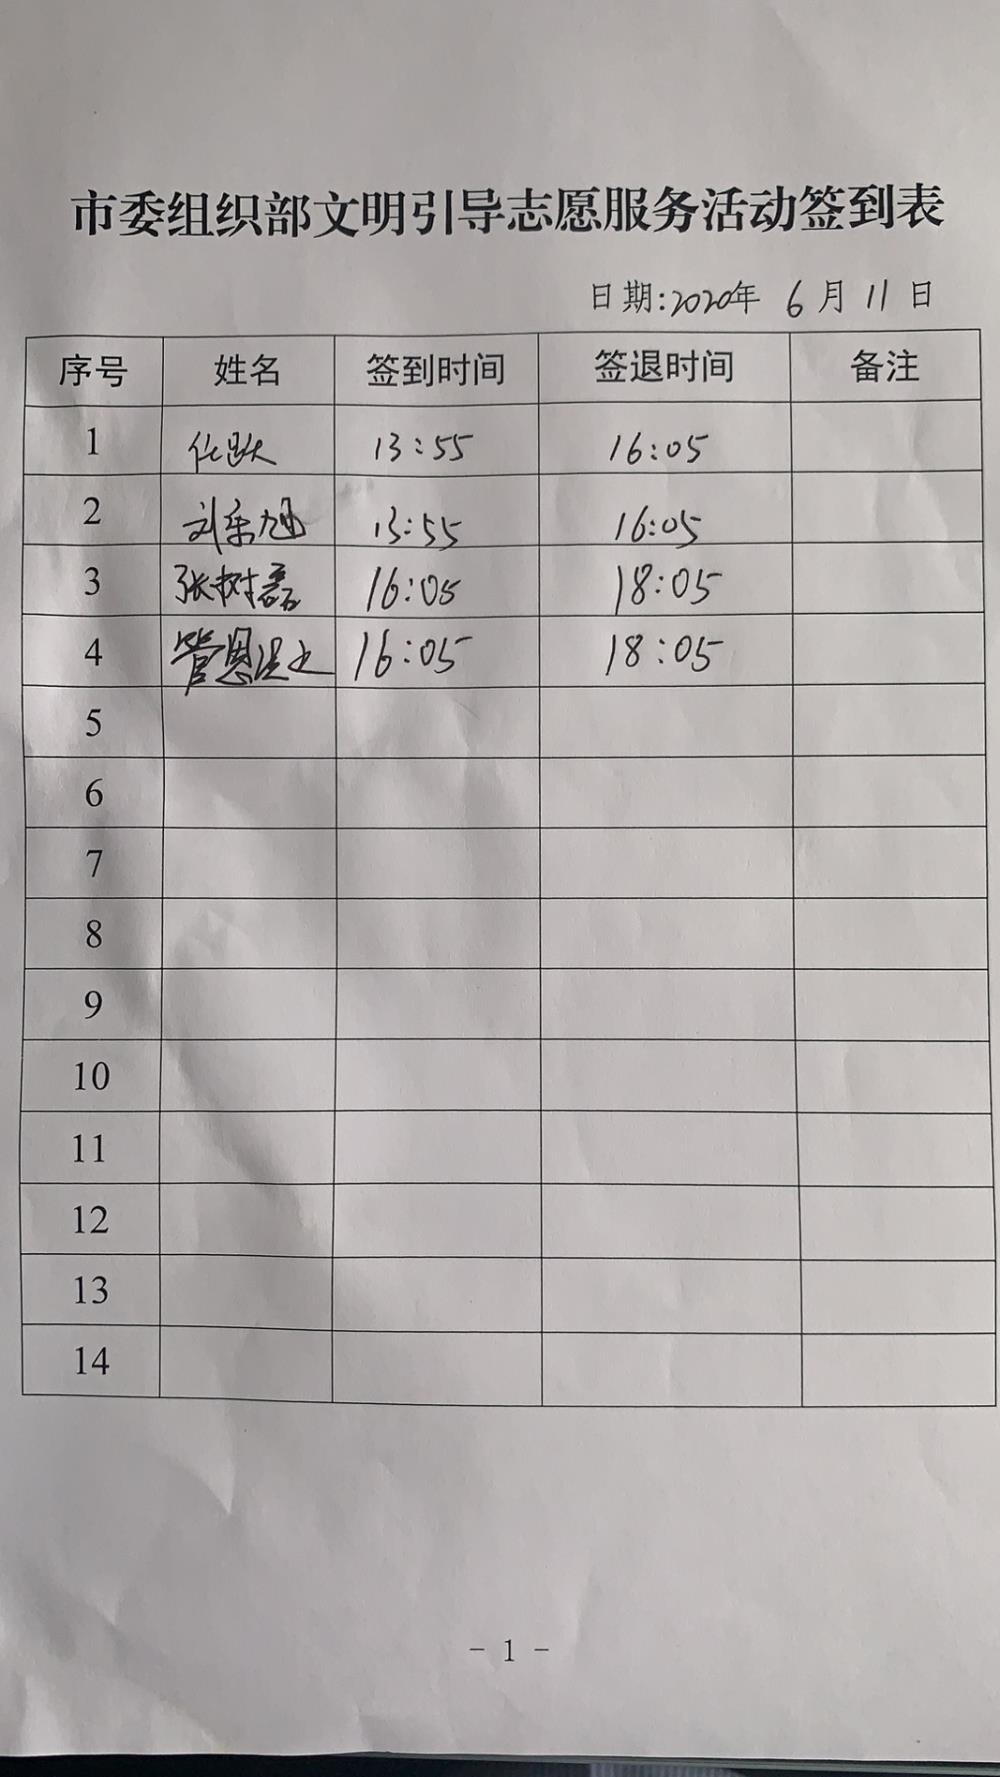 市委组织部文明引导志愿服务活动签到表
日期:2020年 6 月 11 日
序号 姓名 签到时间 签退时间 备注
1 13:55 16:05
2 刘 旭 13:55 16:05
3 张树磊 16:05 18:05
4 管恩 16:05 18:05
5
6
7
8
9
10
11
12
13
14
- 1 -